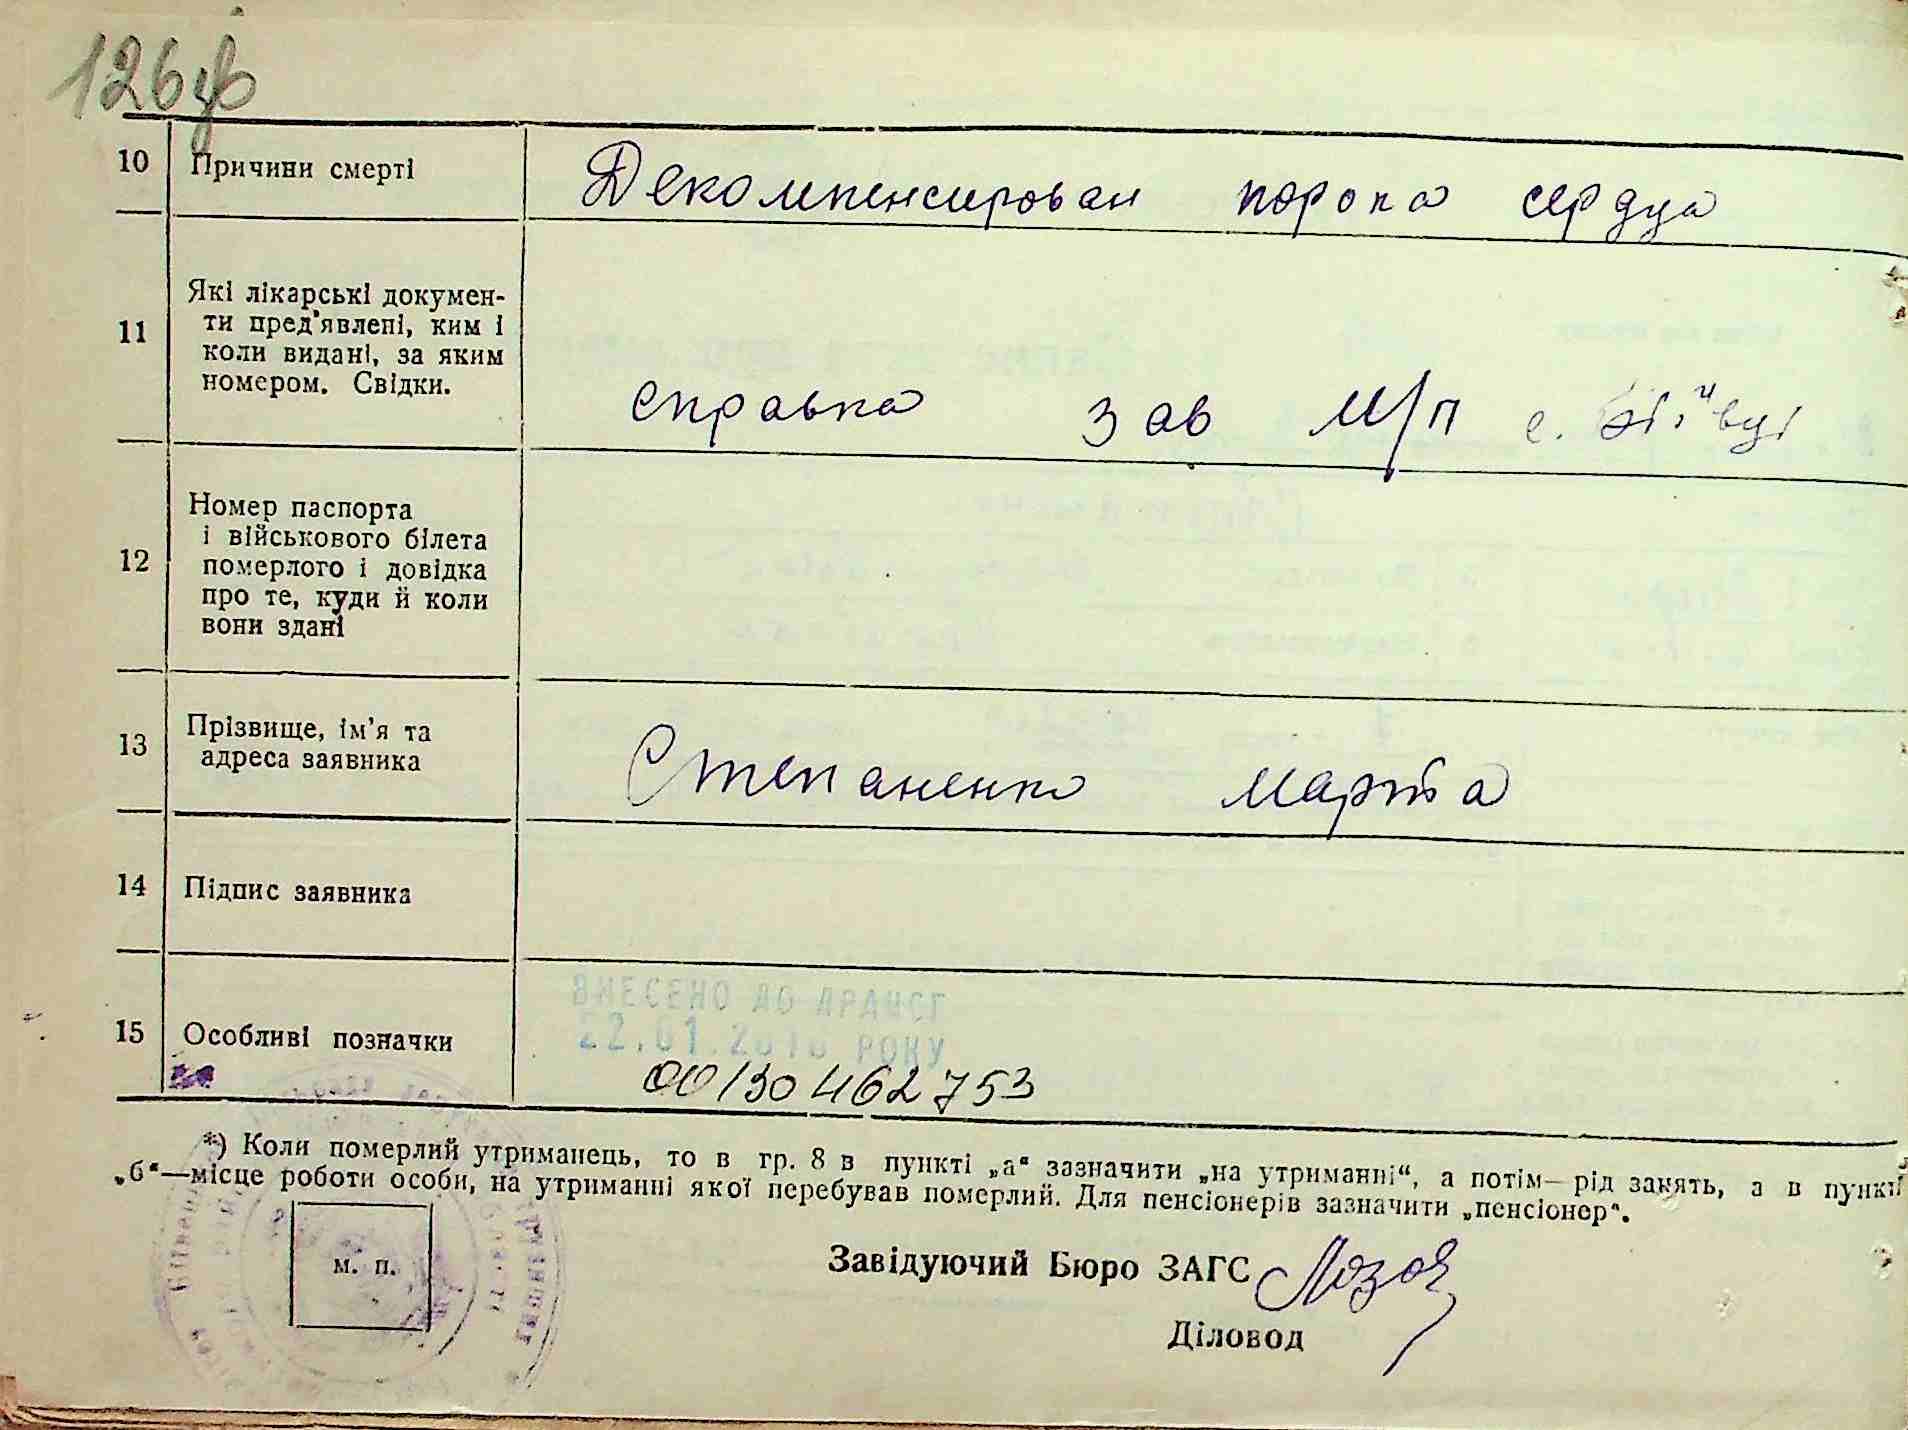 126 зв
10 Причини смерті Декомпенсирован порока сердца
11 Які лікарські докумен-
ти пред'явлені, ким і
коли видані, за яким
номером. Свідки.
справка зав м/п с.
12 Номер паспорта
і військового білета
померлого і довідка
про те, куди й коли
вони здані
13 Прізвище, ім'я та
адреса заявника
Степаненко Марта
14 Підпис заявника
15 Особливі позначки
ВНЕСЕНО ДО ДРАЦСГ
22.01.2010 РОКУ
00130462753
*) Коли померлий утриманець, то в гр. 8 в пункті „а“ зазначити „на утриманні“, а потім— рід занять, а в пункті
„б“—місце роботи особи, на утриманні якої перебував померлий. Для пенсіонерів зазначити „пенсіонер“.
м. п.
Завідуючий Бюро ЗАГС
Діловод